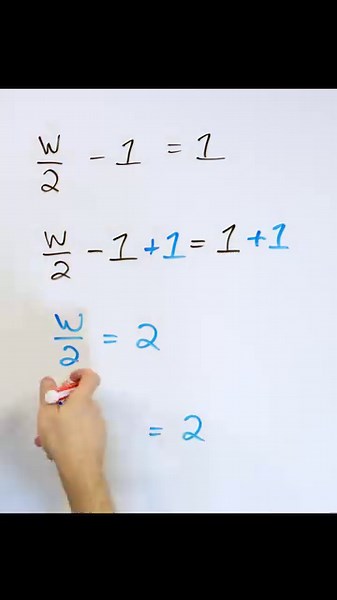 w/2 - 1 = 1
w/2 - 1 + 1 = 1 + 1
w/2 = 2
= 2